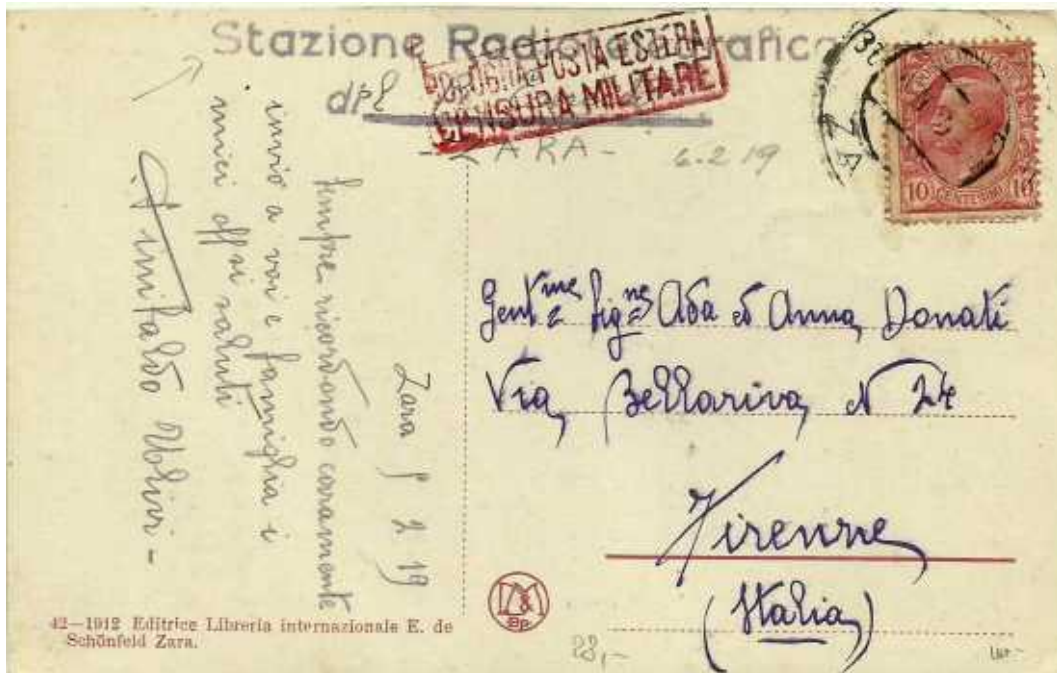 Stazione Radiotelegrafica
BOLOGNA POSTA ESTERA
CENSURA MILITARE
-ZARA-
6.2.19
POSTE ITALIANE
10 CENTESIMI 10
Zara 5 2 19
Sempre ricordando caramente
invio a voi e famiglia i
miei aff si saluti
Ulivi -
Gent.me Sig.ne Ada ed Anna Donati
Via Bellariva N 24
Firenze
(Italia)
42—1912 Editrice Libreria internazionale E. de
Schönfeld Zara.
D&M
Bp.
28,-